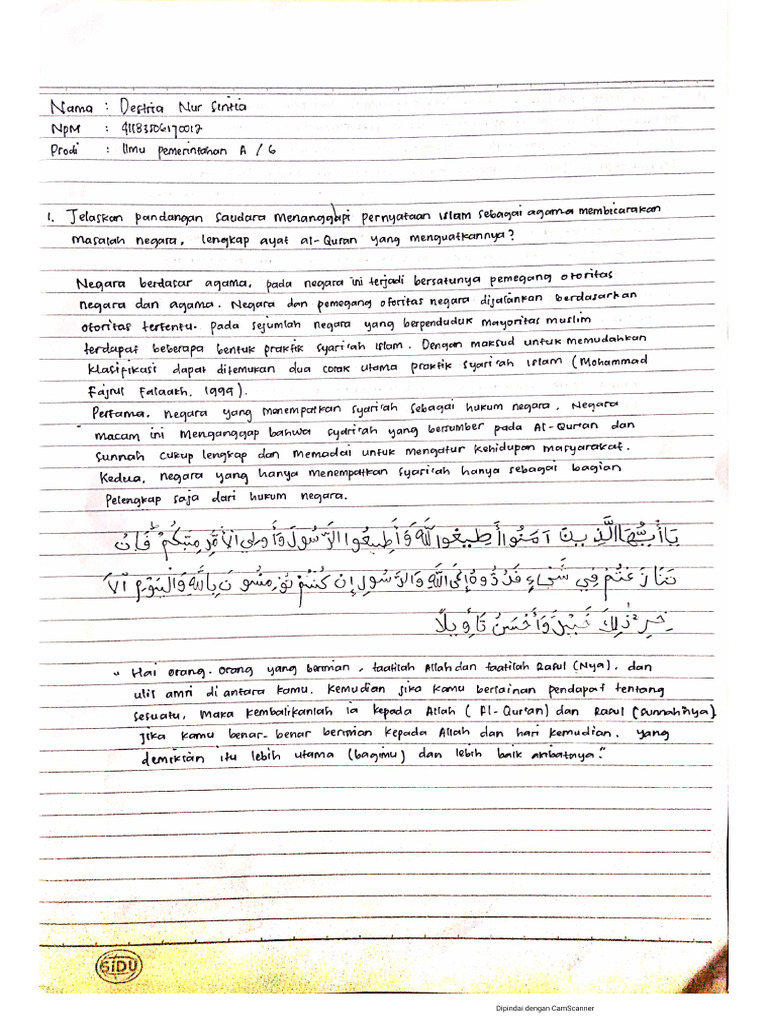 Nama : Destria Nur Sintia
NPM : 41183506170017
Prodi : Ilmu pemerintahan A / 6
1. Jelaskan pandangan saudara Menanggapi pernyataan islam sebagai agama membicarakan
masalah negara, lengkap ayat al-Quran yang menguatkannya?
Negara berdasar agama, pada negara ini terjadi bersatunya pemegang otoritas
negara dan agama. Negara dan pemegang otoritas negara dijalankan berdasarkan
otoritas tertentu. pada sejumlah negara yang berpenduduk mayoritas muslim
terdapat beberapa bentuk praktik syari'ah islam. Dengan maksud untuk memudahkan
klasifikasi dapat ditemukan dua corak utama praktik syari'ah islam (Mohammad
Fajrul Falaakh, 1999).
Pertama, negara yang menempatkan syari'ah sebagai hukum negara. Negara
macam ini Menganggap bahwa syari'ah yang bersumber pada Al-Qur'an dan
Sunnah cukup lengkap dan Memadai untuk mengatur kehidupan masyarakat.
Kedua, negara yang hanya menempatkan syari'ah hanya sebagai bagian
Pelengkap saja dari hukum negara.
يَا أَيُّهَا الَّذِينَ آمَنُوا أَطِيعُوا اللَّهَ وَأَطِيعُوا الرَّسُولَ وَأُولِي الْأَمْرِ مِنْكُمْ فَإِنْ
تَنَازَعْتُمْ فِي شَيْءٍ فَرُدُّوهُ إِلَى اللَّهِ وَالرَّسُولِ إِنْ كُنْتُمْ تُؤْمِنُونَ بِاللَّهِ وَالْيَوْمِ الْآ
خِرِ ذَٰلِكَ خَيْرٌ وَأَحْسَنُ تَأْوِيلًا
" Hai orang-orang yang beriman, taatilah Allah dan taatilah Rasul (Nya), dan
ulil amri di antara kamu. Kemudian jika kamu berlainan pendapat tentang
sesuatu, Maka kembalikanlah ia kepada Allah (Al-Qur'an) dan Rasul (Sunnahnya)
jika kamu benar-benar beriman kepada Allah dan hari kemudian. yang
demikian itu lebih utama (bagimu) dan lebih baik akibatnya."
SiDU
Dipindai dengan CamScanner